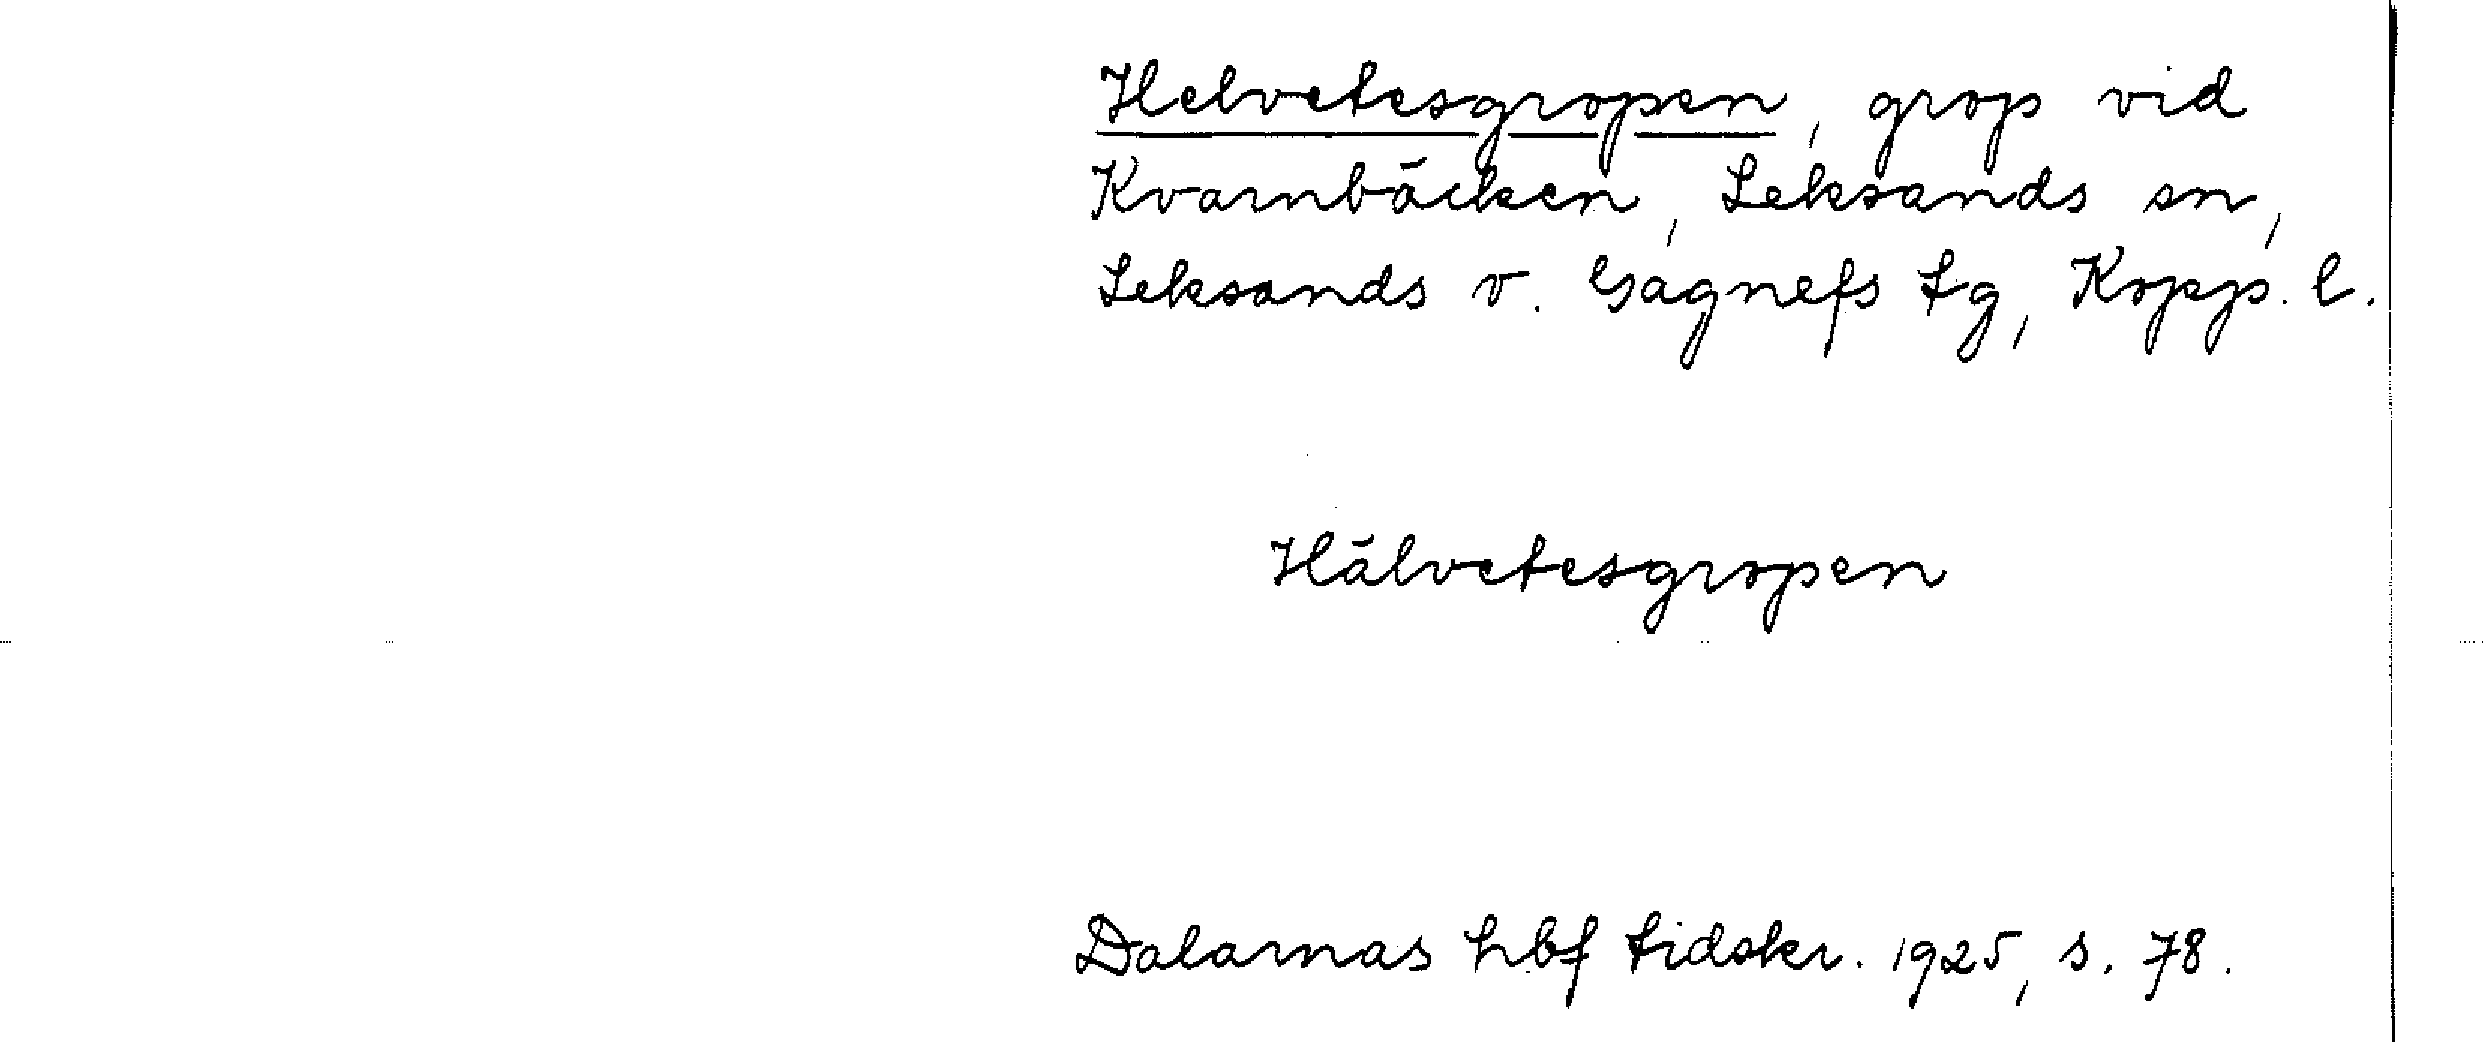 Helvetesgropen, grop vid
Kvarnbäcken, Leksands sn,
Leksands v. Gagnefs tg, Kopp. l.
Hälvetesgropen
Dalarnas hbf tidskr. 1925, s. 78.